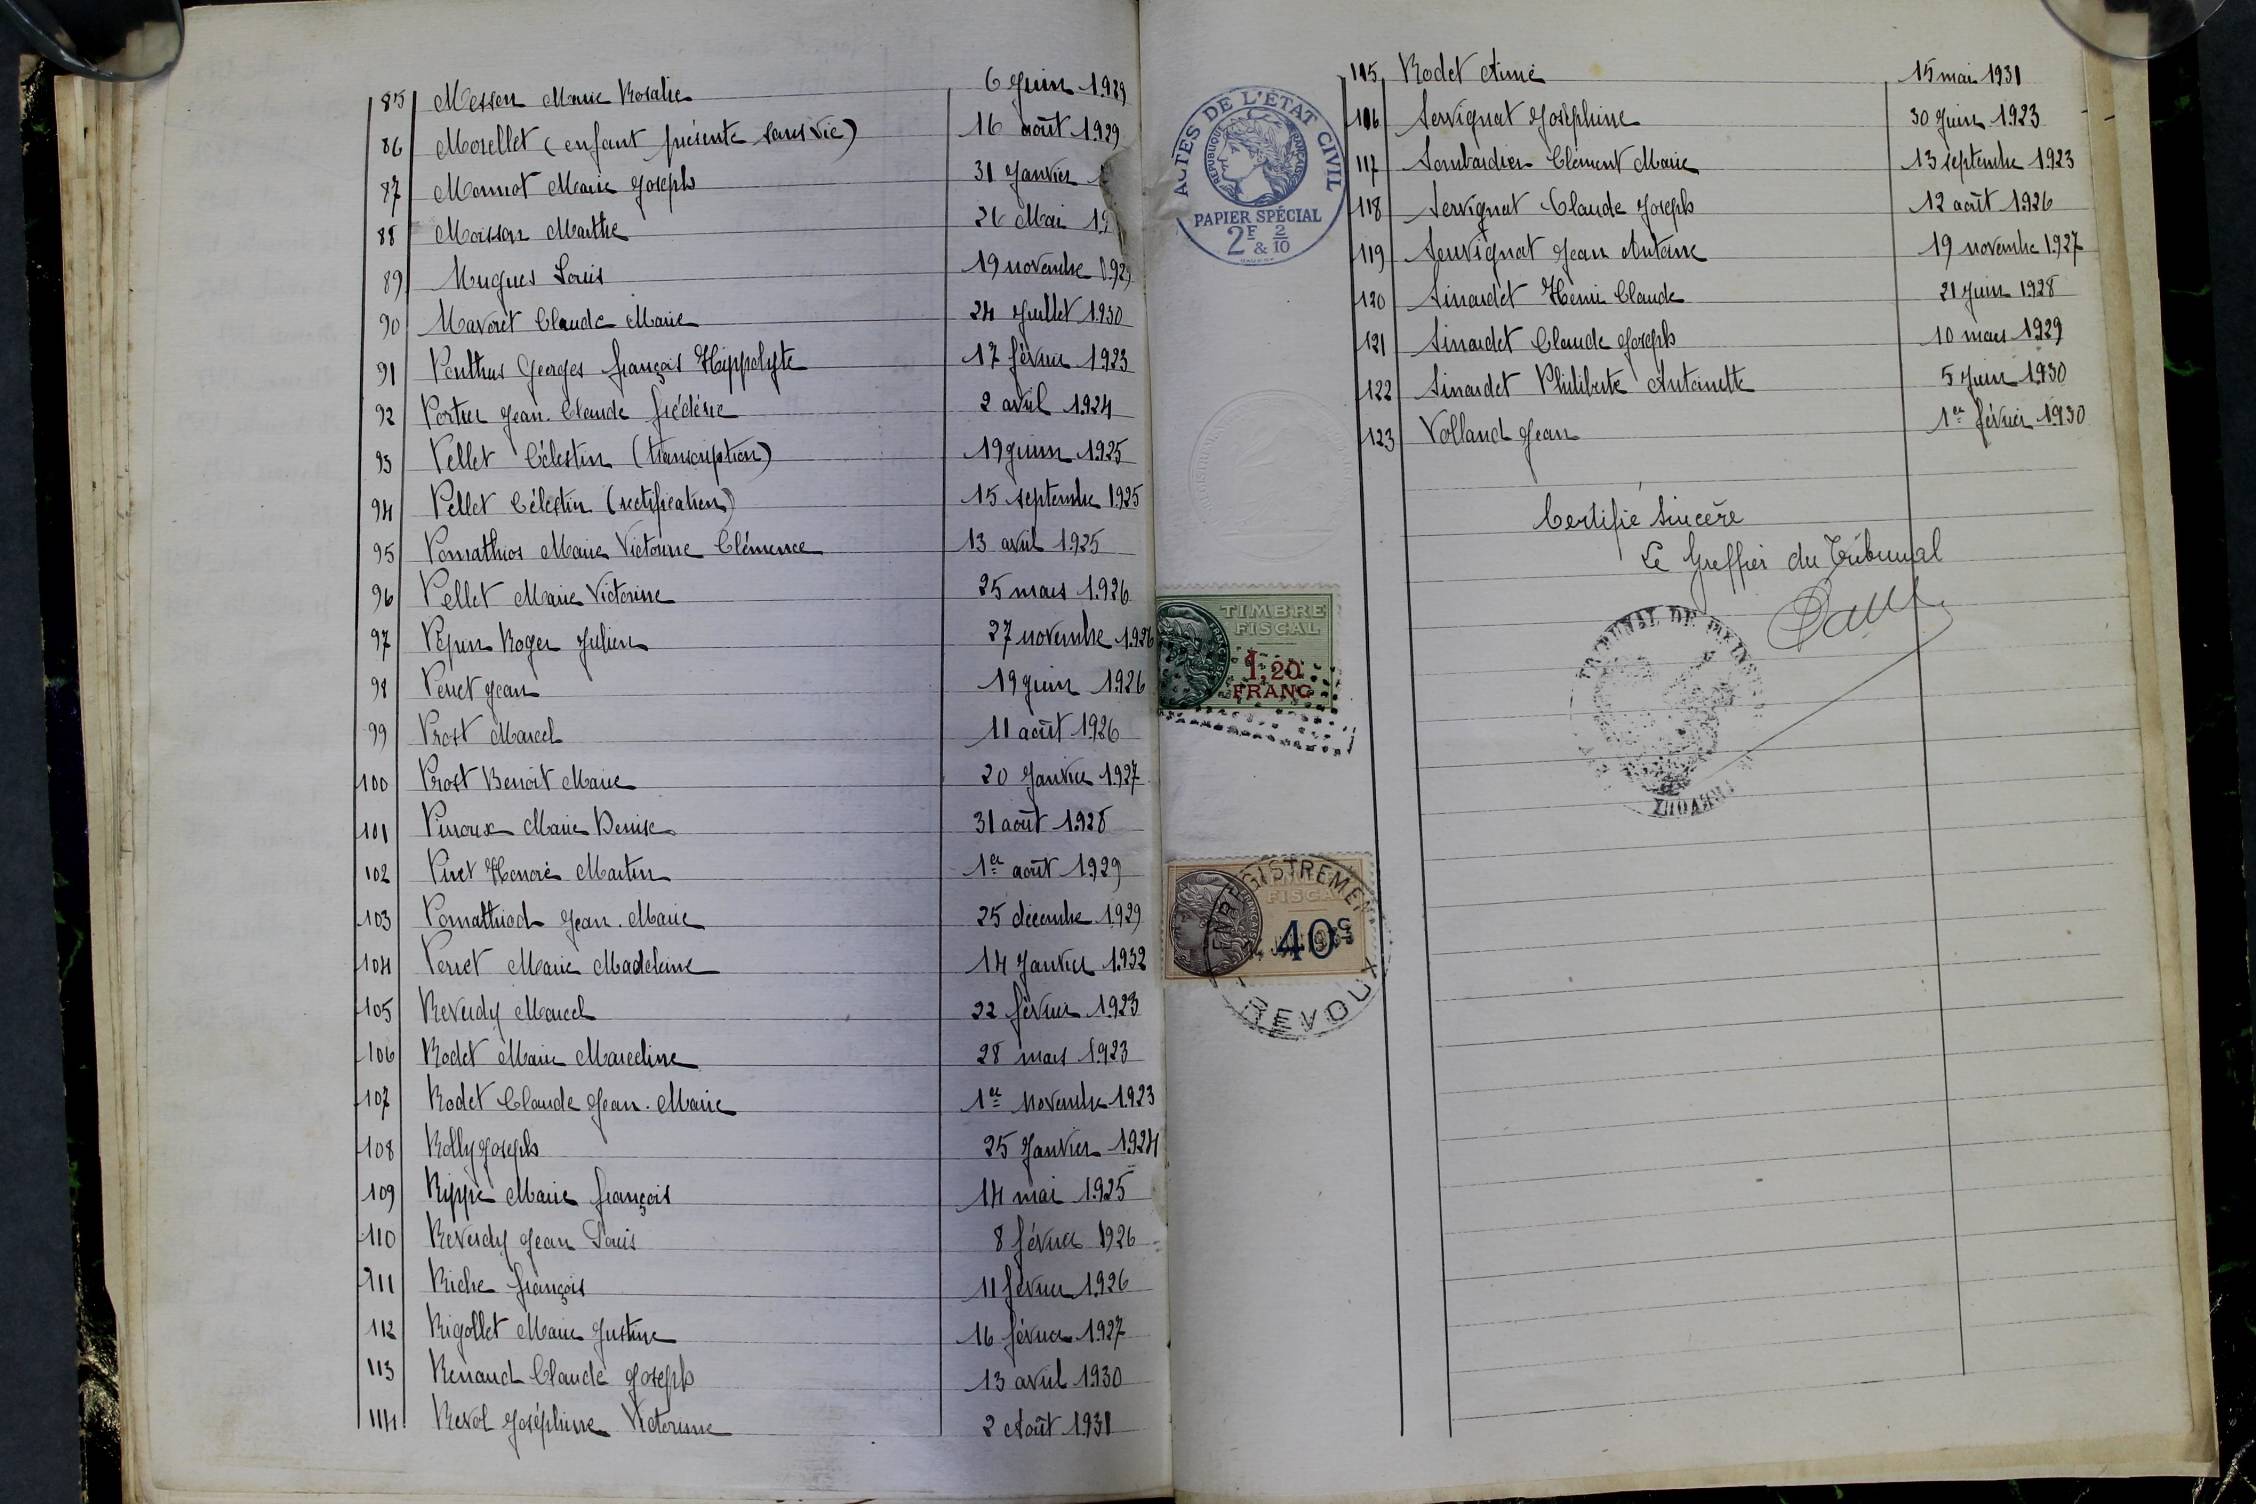 85 Messon Marie Rosalie 6 Juin 1929
86 Morellet (enfant présenté sans vie) 16 août 1929
87 Monnot Marie Joseph 31 Janvier
88 Moisson Marthe 26 Mai 19
89 Mugues Louis 19 novembre 1929
90 Mavoret Claude Marie 24 Juillet 1930
91 Ponthus Georges françois Hippolyte 17 février 1923
92 Portier Jean. Claude frédéric 2 avril 1924
93 Pellet Célestin (transcription) 19 juin 1925
94 Pellet Célestin (rectification) 15 septembre 1925
95 Pomathios Marie Victorine Clémence 13 avril 1925
96 Pellet Marie Victorine 25 mars 1926
97 Pépin Roger Julien 27 novembre 1926
98 Perret Jean 19 juin 1926
99 Prost Marcel 11 août 1926
100 Prost Benoît Marie 20 Janvier 1927
101 Piroux Marie Denise 31 août 1928
102 Piret Honoré Martin 1er août 1929
103 Pomathiod Jean. Marie 25 décembre 1929
104 Perret Marie Madeleine 14 Janvier 1932
105 Reverdy Marcel 22 février 1923
106 Rodet Marie Marceline 28 mars 1923
107 Rodet Claude Jean. Marie 1er Novembre 1923
108 Rolly Joseph 25 Janvier 1924
109 Rippe Marie françois 14 mai 1925
110 Reverdy Jean Louis 8 février 1926
111 Riche françois 11 février 1926
112 Rigollet Marie Justine 16 février 1927
113 Renaud Claude Joseph 13 avril 1930
114 Revol Joséphine Victorine 2 Août 1931
ACTES DE L'ÉTAT CIVIL
RÉPUBLIQUE FRANÇAISE
PAPIER SPÉCIAL
2F & 2/10
TIMBRE
FISCAL
1,20
FRANC
ENREGISTREMENT
FISCAL
40c
TREVOUX
115 Rodet Aimé 15 mai 1931
116 Servignat Joséphine 30 Juin 1923
117 Sombardier Clément Marie 13 septembre 1923
118 Servignat Claude Joseph 12 août 1926
119 Servignat Jean Antoine 19 novembre 1927
120 Sinardet Henri Claude 21 Juin 1928
121 Sinardet Claude Joseph 10 mars 1929
122 Sinardet Philiberte Antoinette 5 Juin 1930
123 Volland Jean 1er février 1930
Certifié Sincère
Le Greffier du Tribunal
TRIBUNAL DE
TREVOUX